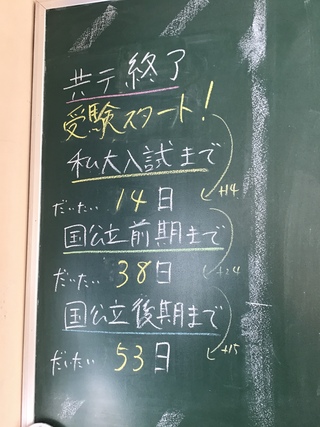 共テ終了
受験スタート!
私大入試まで
だいたい 14日
+14
国公立前期まで
だいたい 38日
+24
国公立後期まで
だいたい 53日
+15